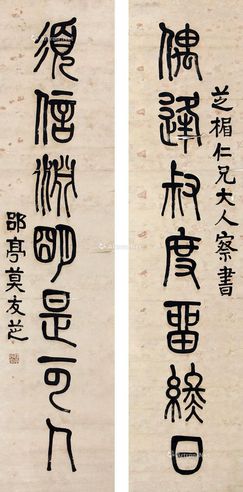 芝楣仁兄大人察書
偶逢叔度畱終日
須信淵明是可人
郘亭莫友芝